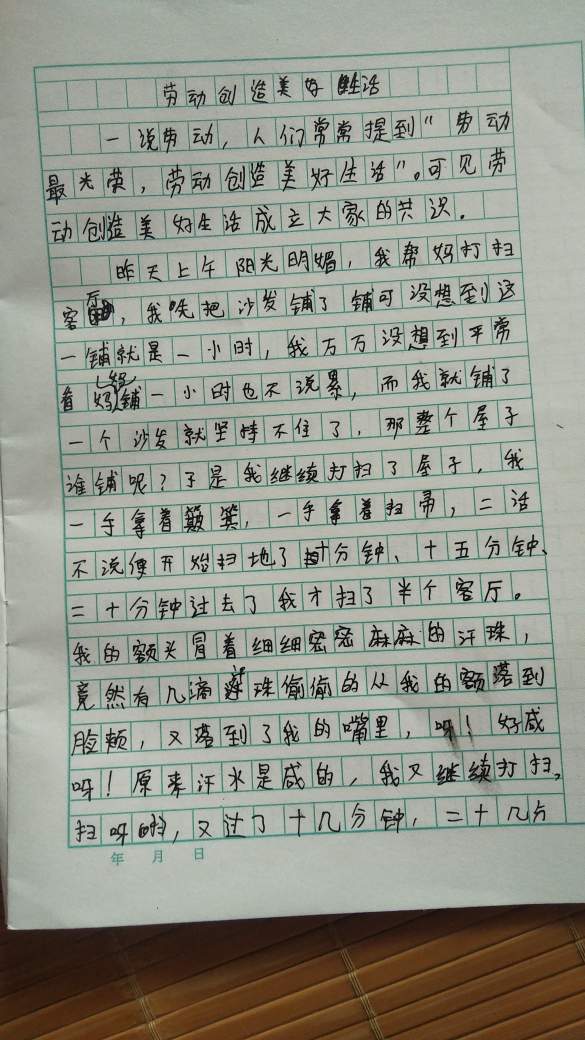 劳动创造美好生活
一说劳动，人们常常提到“劳动
最光荣，劳动创造美好生活”。可见劳
动创造美好生活成立大家的共识。
昨天上午阳光明媚，我帮妈打扫
客厅，我先把沙发铺了铺可没想到这
一铺就是一小时，我万万没想到平常
看妈妈铺一小时也不说累，而我就铺了
一个沙发就坚持不住了，那整个屋子
谁铺呢？于是我继续打扫了屋子，我
一手拿着簸箕，一手拿着扫帚，二话
不说便开始扫地了十分钟、十五分钟、
二十分钟过去了我才扫了半个客厅。
我的额头冒着细细密密麻麻的汗珠，
竟然有几滴汗珠偷偷的从我的额落到
脸颊，又落到了我的嘴里，呀！好咸
呀！原来汗水是咸的，我又继续打扫，
扫呀扫，又过了十几分钟，二十几分
年 月 日